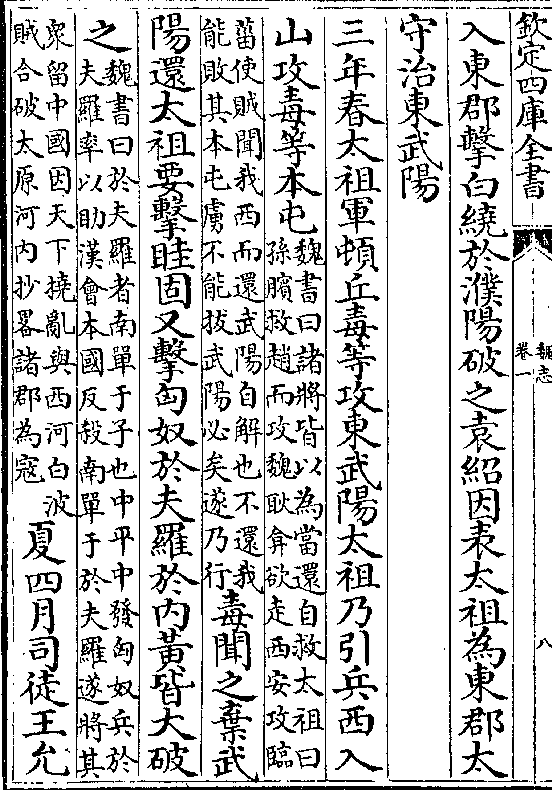 欽定四庫全書
魏志
卷一
八
入東郡擊白繞於濮陽破之袁紹因表太祖為東郡太
守治東武陽
三年春太祖軍頓丘毒等攻東武陽太祖乃引兵西入
山攻毒等本屯
魏書曰諸將皆以為當還自救太祖曰
孫臏救趙而攻魏耿弇欲走西安攻臨
菑使賊聞我西而還武陽自解也不還我
能敗其本屯虜不能拔武陽必矣遂乃行
毒聞之棄武
陽還太祖要擊眭固又擊匈奴於夫羅於内黃皆大破
之
魏書曰於夫羅者南單于子也中平中發匈奴兵於
夫羅率以助漢會本國反殺南單于於夫羅遂將其
衆留中國因天下撓亂與西河白波
賊合破太原河内抄畧諸郡為寇
夏四月司徒王允